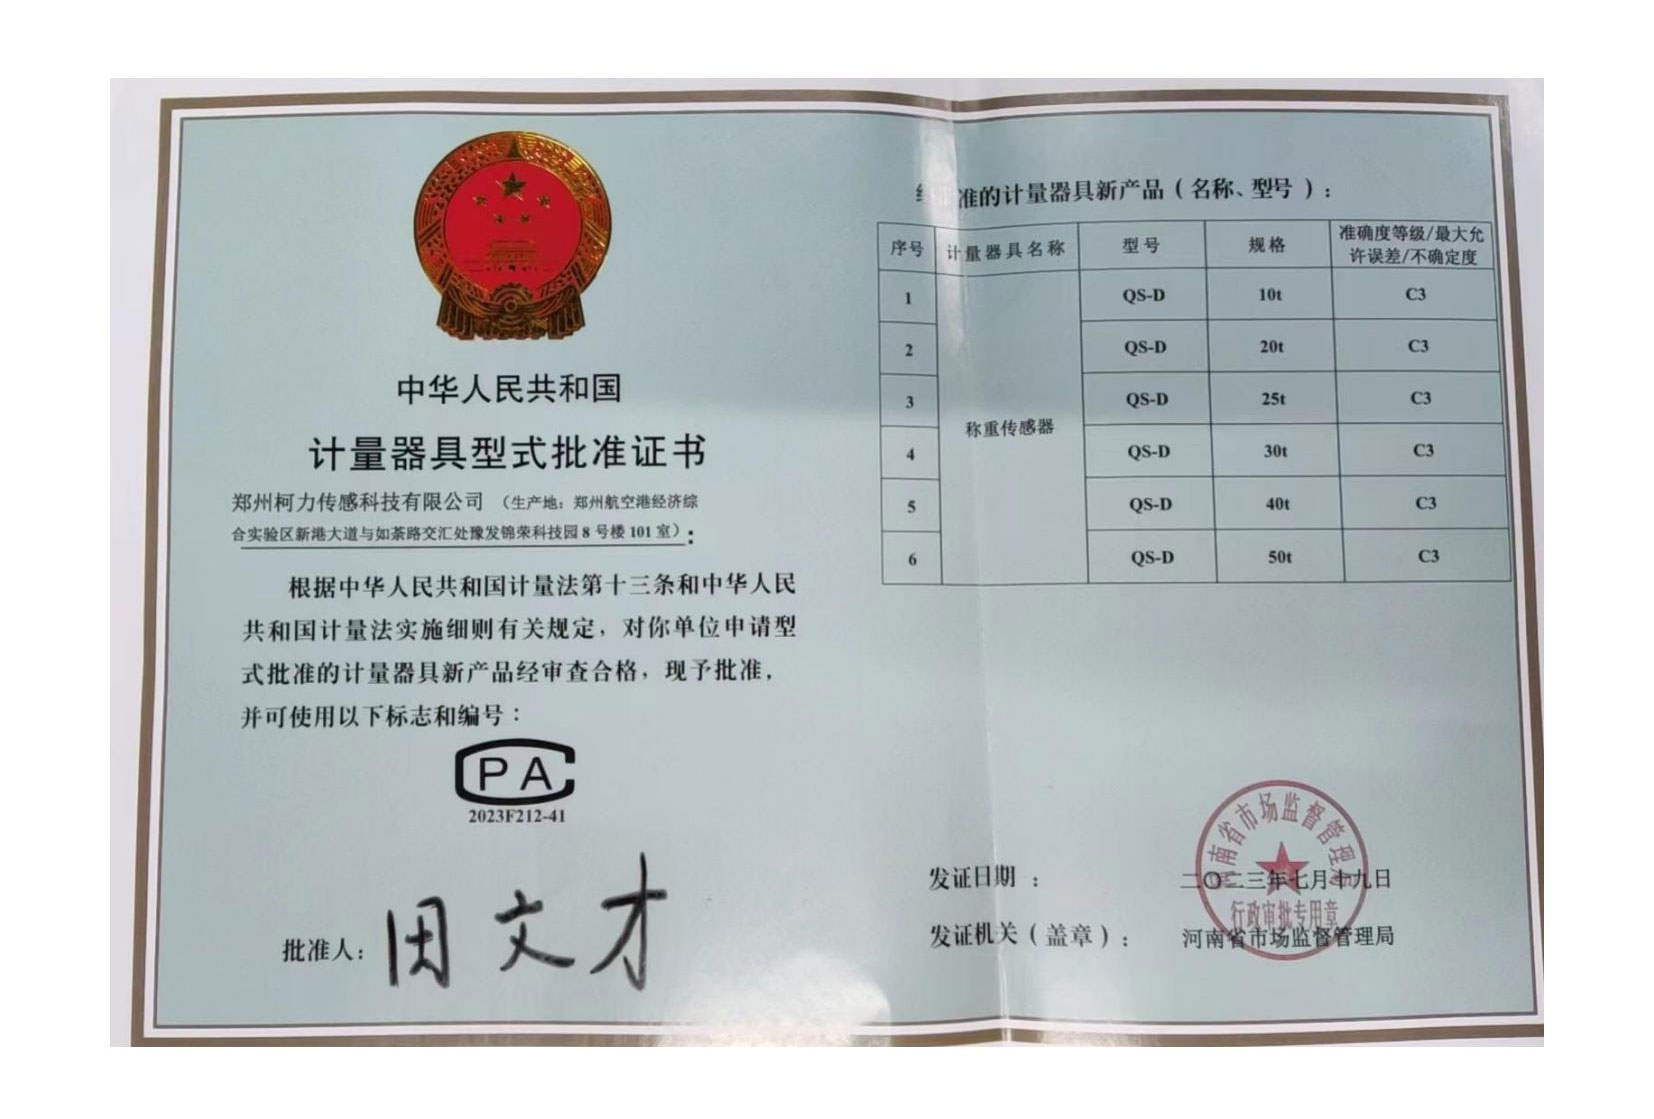 中华人民共和国
计量器具型式批准证书
郑州柯力传感科技有限公司 （生产地：郑州航空港经济综
合实验区新港大道与如荼路交汇处豫发锦荣科技园 8 号楼 101 室）：
根据中华人民共和国计量法第十三条和中华人民
共和国计量法实施细则有关规定，对你单位申请型
式批准的计量器具新产品经审查合格，现予批准，
并可使用以下标志和编号：
CPA
2023F212-41
批准人：
准的计量器具新产品（名称、型号）：
序号 计量器具名称 型号 规格 准确度等级/最大允
许误差/不确定度
1 QS-D 10t C3
2 QS-D 20t C3
3 QS-D 25t C3
称重传感器
4 QS-D 30t C3
5 QS-D 40t C3
6 QS-D 50t C3
河南省市场监督管理局
行政审批专用章
发证日期： 二〇二三年七月十九日
发证机关（盖章）： 河南省市场监督管理局